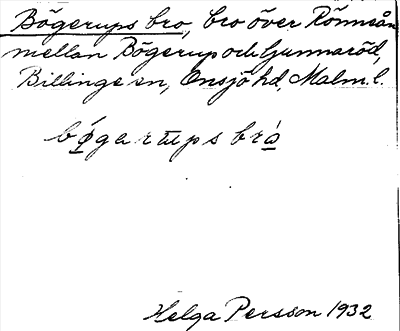 Bögerups bro, bro över Rönneån
mellan Bögerup och Gunnaröd,
Billinge sn, Onsjö hd, Malm. l.
bø̱garɯps brå̱
Helga Persson 1932